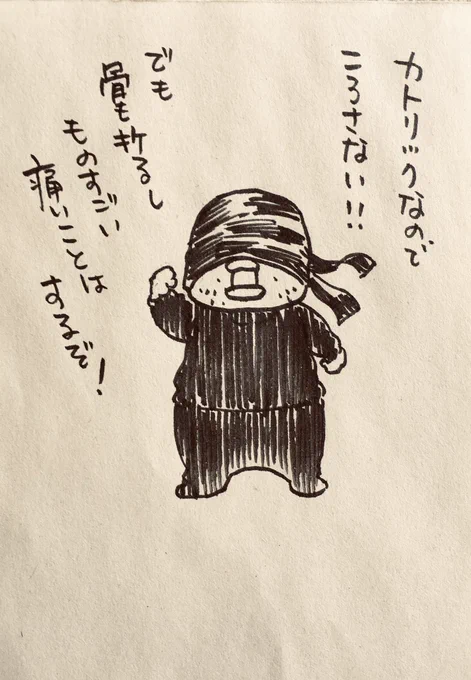 カトリックなので
ころさない!!
でも
骨も折るし
ものすごい
痛いことは
するぞ!